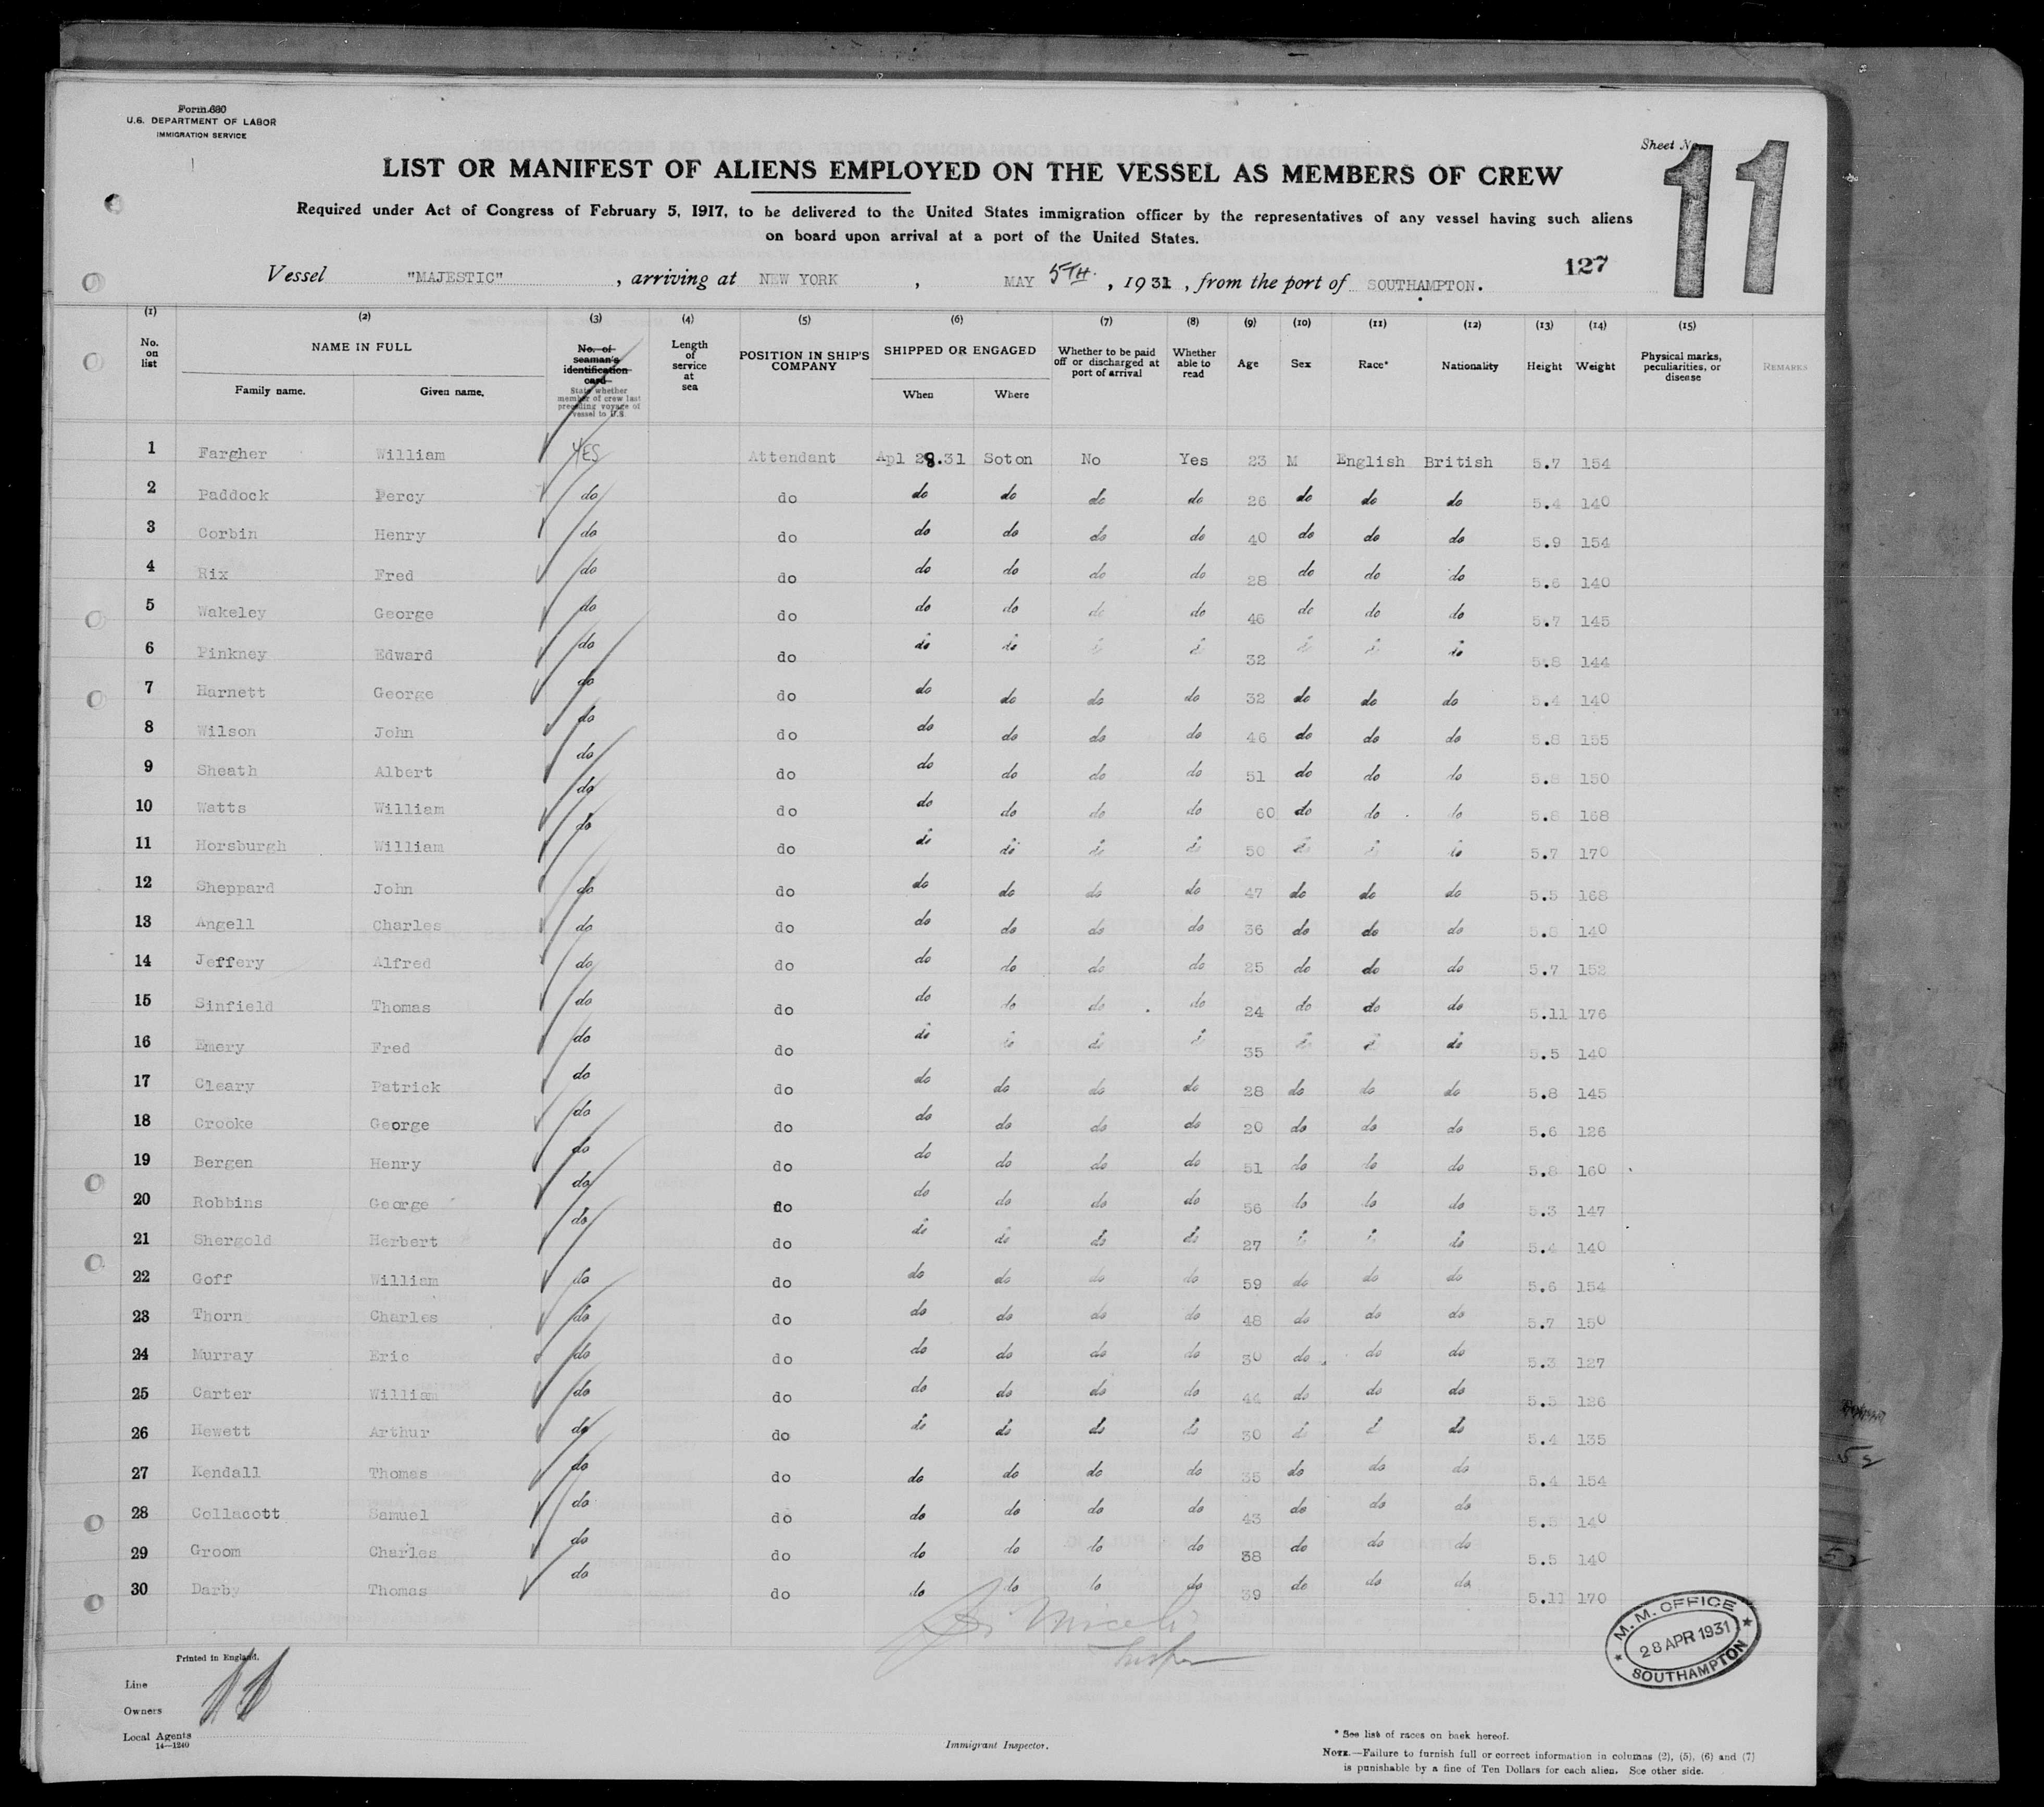 Form 680
U.S. DEPARTMENT OF LABOR
IMMIGRATION SERVICE
Sheet No. 11
LIST OR MANIFEST OF ALIENS EMPLOYED ON THE VESSEL AS MEMBERS OF CREW
Required under Act of Congress of February 5, 1917, to be delivered to the United States immigration officer by the representatives of any vessel having such aliens
on board upon arrival at a port of the United States.
127
Vessel "MAJESTIC", arriving at NEW YORK, MAY 5TH, 1931, from the port of SOUTHAMPTON.
(1) (2) (3) (4) (5) (6) (7) (8) (9) (10) (11) (12) (13) (14) (15)
No. on list
NAME IN FULL
Family name. Given name.
No. of seaman's identification card
State whether member of crew last preceding voyage of vessel to U.S.
Length of service at sea
POSITION IN SHIP'S COMPANY
SHIPPED OR ENGAGED
When Where
Whether to be paid off or discharged at port of arrival
Whether able to read
Age
Sex
Race*
Nationality
Height
Weight
Physical marks, peculiarities, or disease
REMARKS
1 Fargher William YES Attendant Apl 28.31 Soton No Yes 23 M English British 5.7 154
2 Paddock Percy do do do do do do 26 do do do 5.4 140
3 Corbin Henry do do do do do do 40 do do do 5.9 154
4 Rix Fred do do do do do do 28 do do do 5.6 140
5 Wakeley George do do do do do do 46 do do do 5.7 145
6 Pinkney Edward do do do do do do 32 do do do 5.8 144
7 Harnett George do do do do do do 32 do do do 5.4 140
8 Wilson John do do do do do do 46 do do do 5.8 155
9 Sheath Albert do do do do do do 51 do do do 5.8 150
10 Watts William do do do do do do 60 do do do 5.8 168
11 Horsburgh William do do do do do do 50 do do do 5.7 170
12 Sheppard John do do do do do do 47 do do do 5.5 168
13 Angell Charles do do do do do do 36 do do do 5.8 140
14 Jeffery Alfred do do do do do do 25 do do do 5.7 152
15 Sinfield Thomas do do do do do do 24 do do do 5.11 176
16 Emery Fred do do do do do do 35 do do do 5.5 140
17 Cleary Patrick do do do do do do 28 do do do 5.8 145
18 Crooke George do do do do do do 20 do do do 5.6 126
19 Bergen Henry do do do do do do 51 do do do 5.8 160
20 Robbins George do do do do do do 56 do do do 5.3 147
21 Shergold Herbert do do do do do do 27 do do do 5.4 140
22 Goff William do do do do do do 59 do do do 5.6 154
23 Thorn Charles do do do do do do 48 do do do 5.7 150
24 Murray Eric do do do do do do 30 do do do 5.3 127
25 Carter William do do do do do do 44 do do do 5.5 126
26 Hewett Arthur do do do do do do 30 do do do 5.4 135
27 Kendall Thomas do do do do do do 35 do do do 5.4 154
28 Collacott Samuel do do do do do do 43 do do do 5.5 140
29 Groom Charles do do do do do do 38 do do do 5.5 140
30 Darby Thomas do do do do do do 39 do do do 5.11 170
M. M. OFFICE
28 APR 1931
SOUTHAMPTON
Printed in England.
11
Line
Owners
Local Agents
14—1240
Immigrant Inspector.
* See list of races on back hereof.
NOTE.—Failure to furnish full or correct information in columns (2), (5), (6) and (7)
is punishable by a fine of Ten Dollars for each alien. See other side.